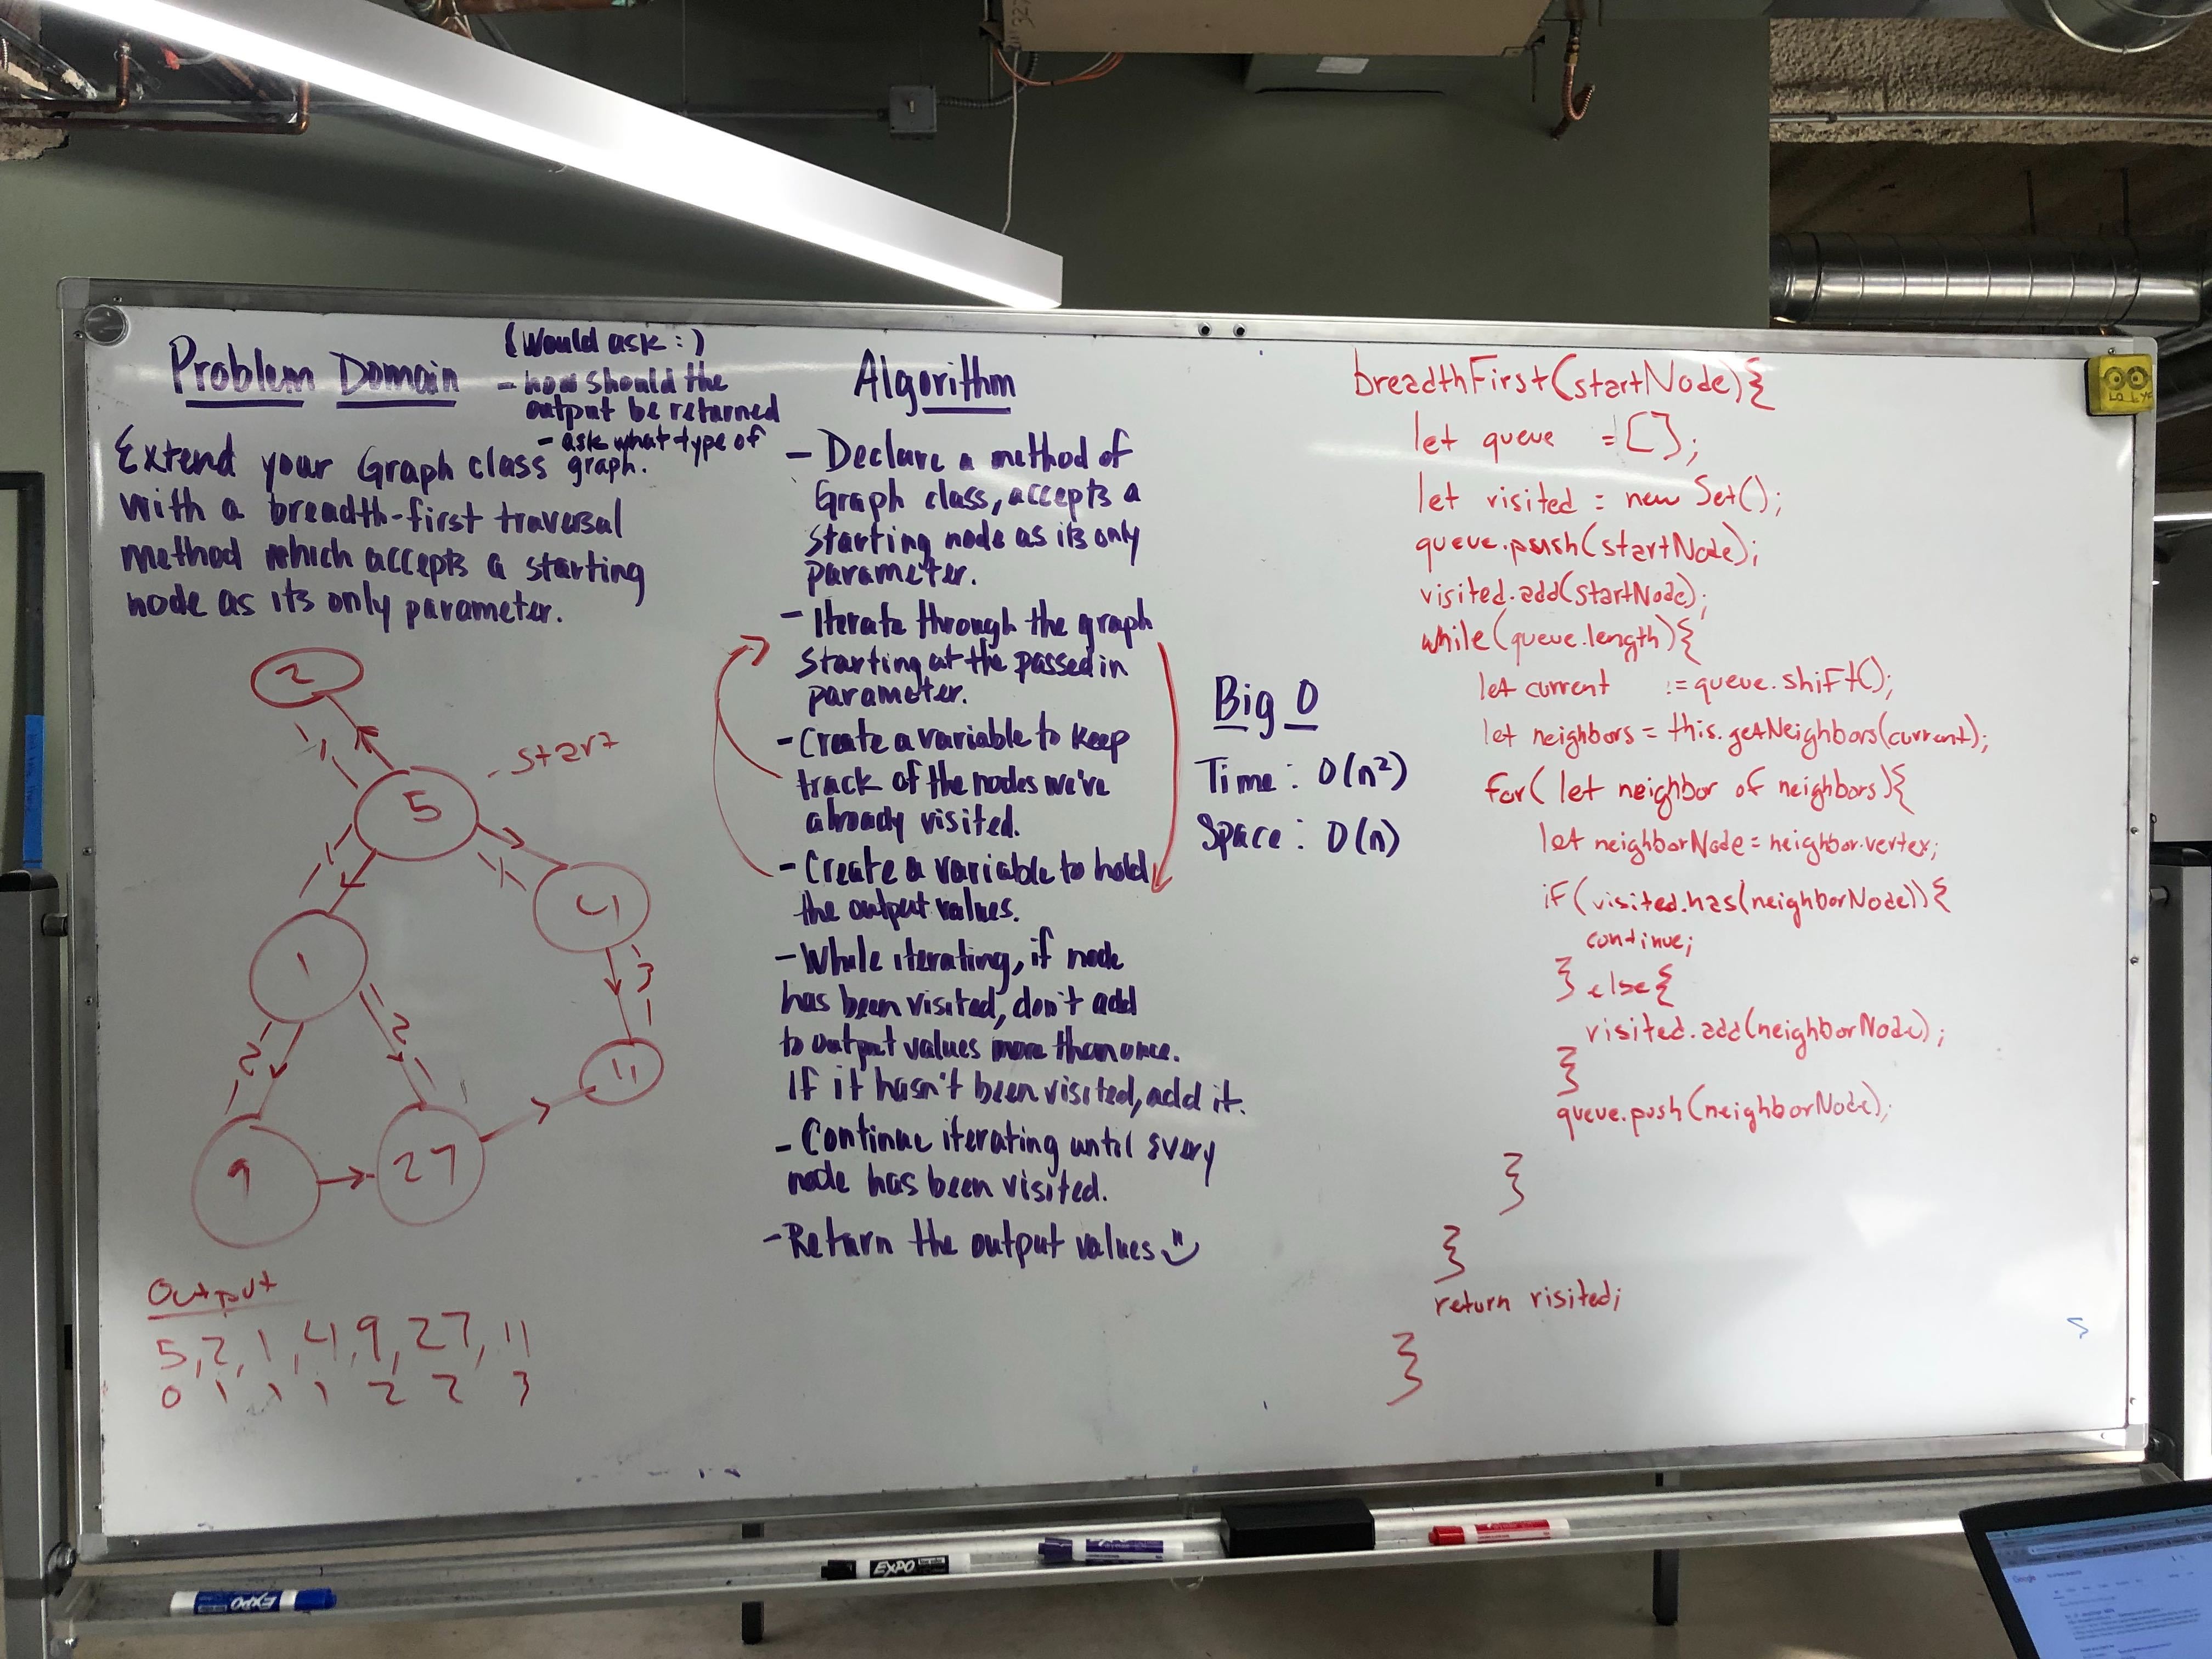 Problem Domain
(Would ask:)
- how should the
output be returned
- ask what type of
graph.
Extend your Graph class
with a breadth-first traversal
method which accepts a starting
node as its only parameter.
2
1
- start
5
1
1
4
1
3
2
2
11
9
27
Output
5,2,1,4,9,27,11
0 1 1 1 2 2 3
Algorithm
- Declare a method of
Graph class, accepts a
starting node as its only
parameter.
- Iterate through the graph
starting at the passed in
parameter.
- Create a variable to keep
track of the nodes we've
already visited.
- Create a variable to hold
the output values.
- While iterating, if node
has been visited, don't add
to output values more than once.
If it hasn't been visited, add it.
- Continue iterating until every
node has been visited.
- Return the output values
Big O
Time: O(n²)
Space: O(n)
breadthFirst(startNode){
let queue = [];
let visited = new Set();
queue.push(startNode);
visited.add(startNode);
while(queue.length){
let current := queue.shift();
let neighbors = this.getNeighbors(current);
for( let neighbor of neighbors){
let neighborNode = neighbor.vertex;
if(visited.has(neighborNode)){
continue;
} else{
visited.add(neighborNode);
}
queue.push(neighborNode);
}
}
return visited;
}
EXPO
EXPO
Google